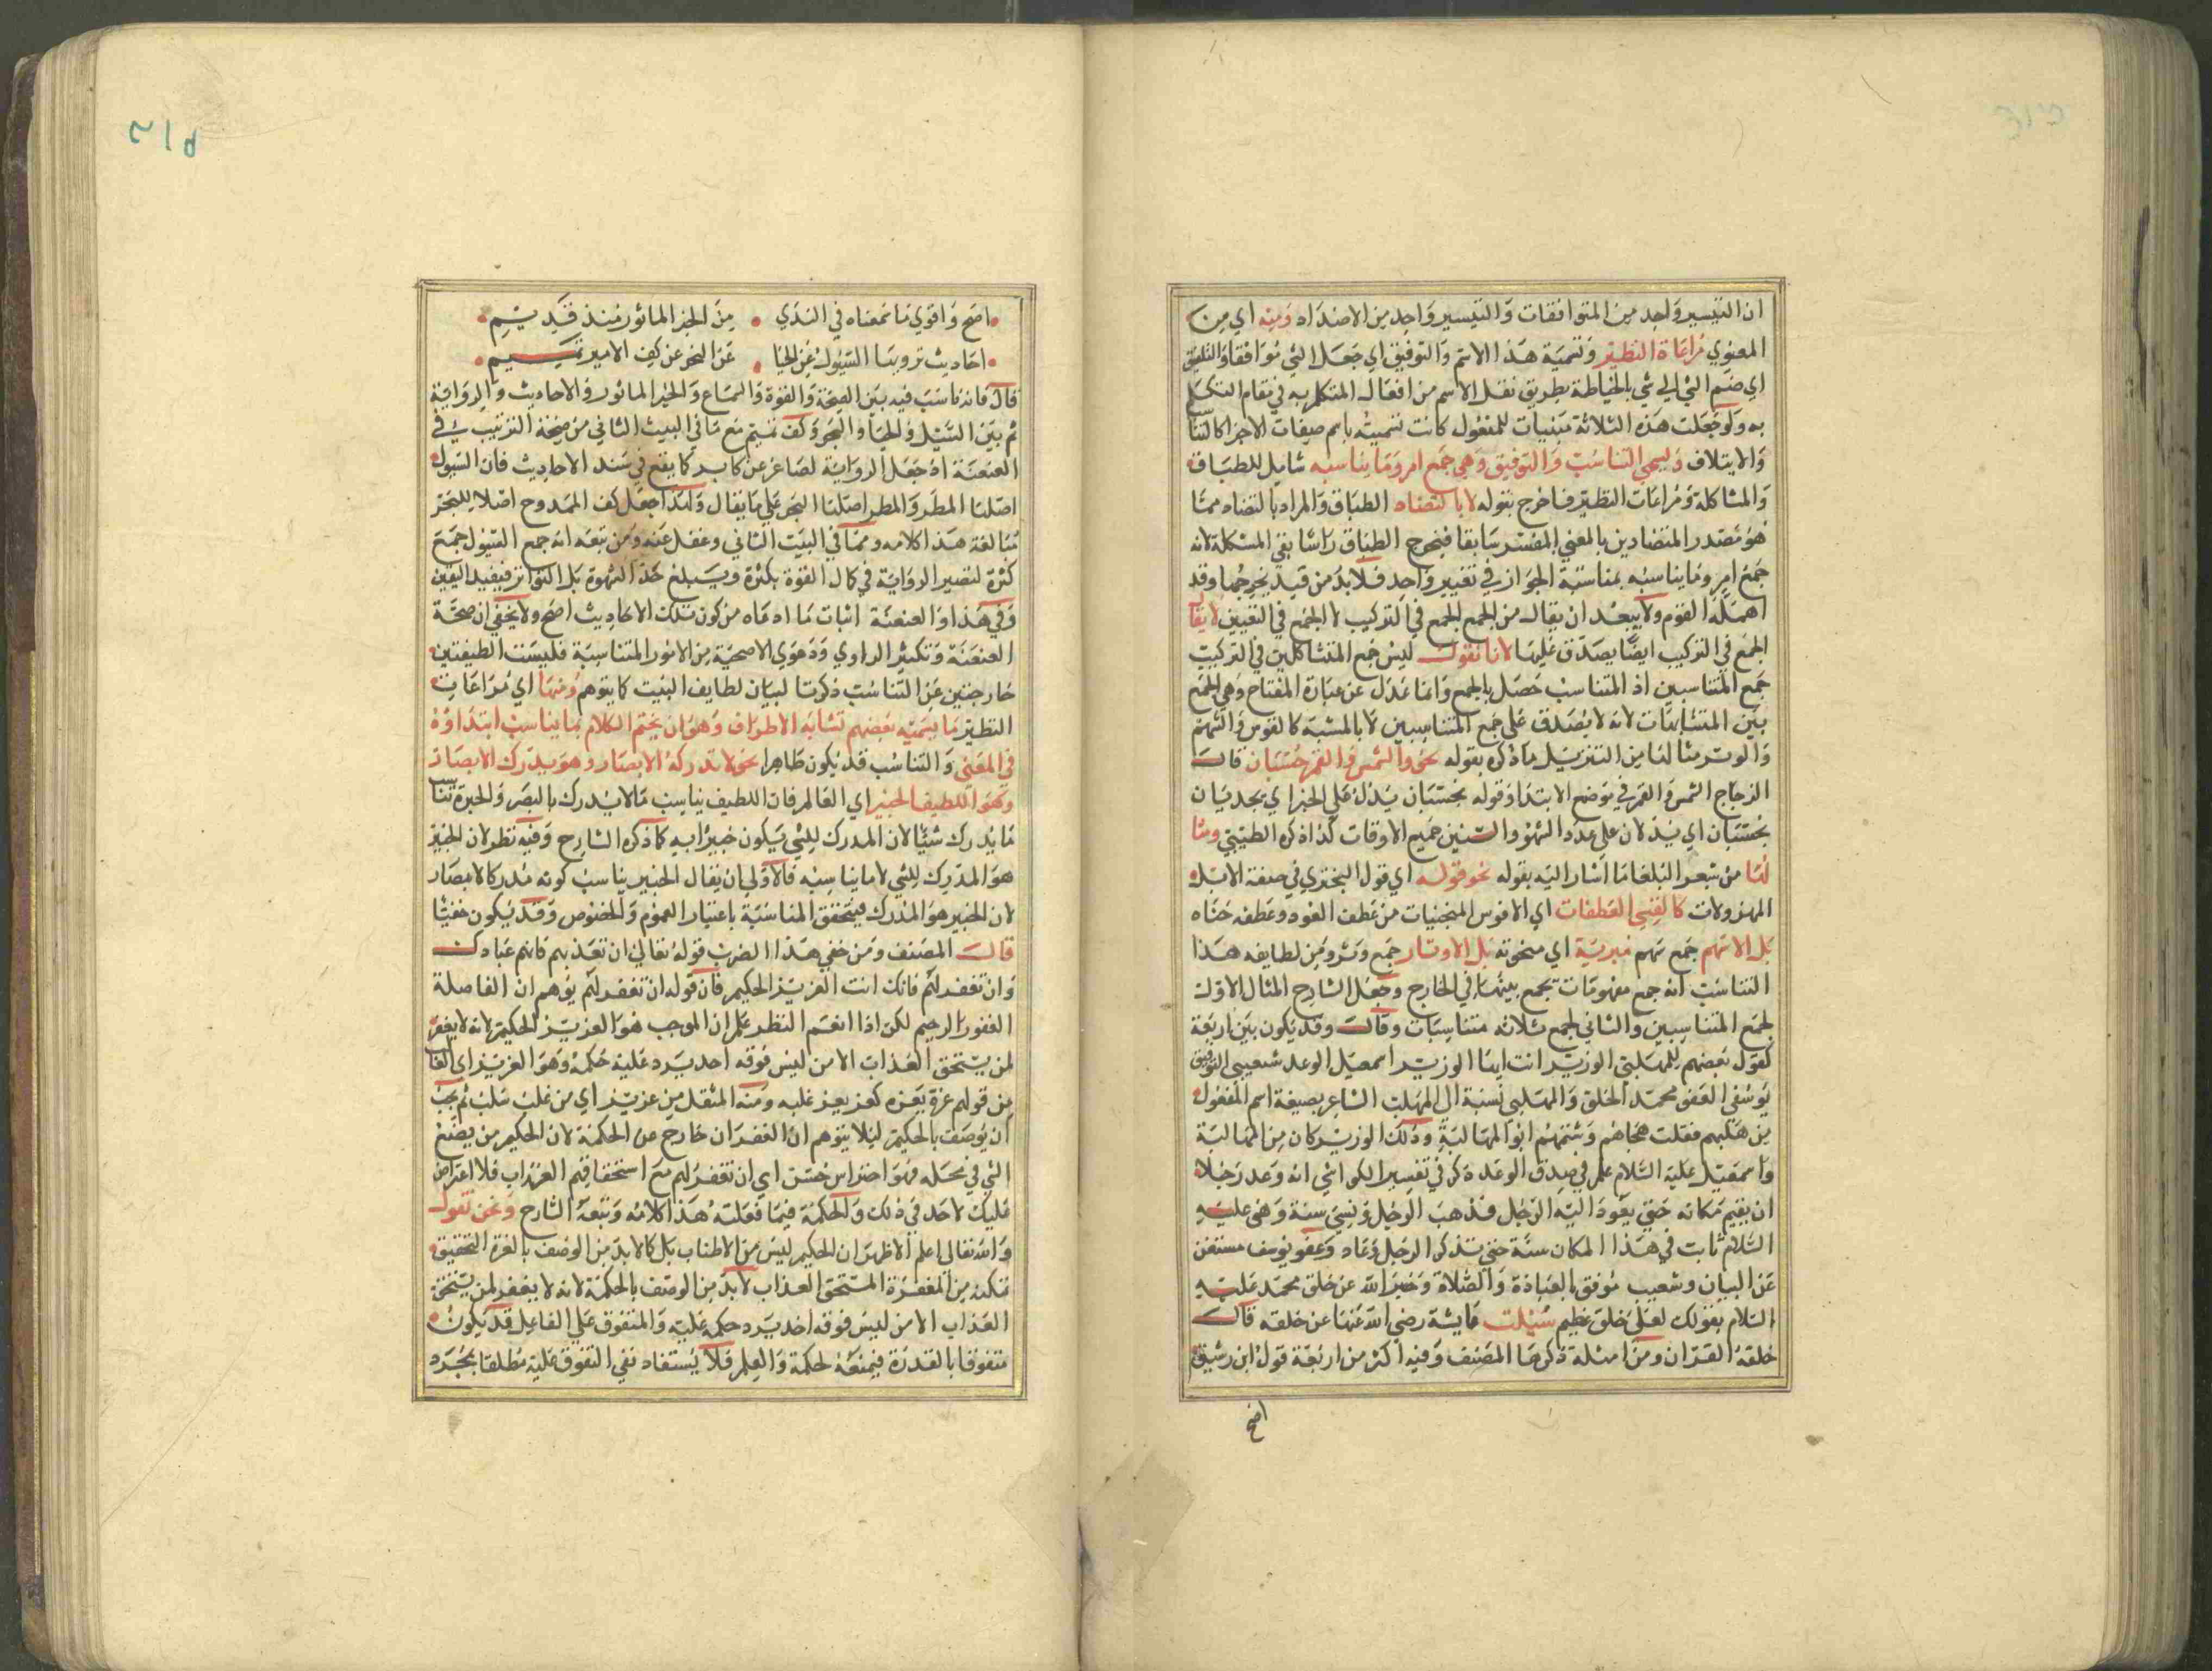 ان التيسير واحد من المتوافقات والتيسير واحد من الاضداد ومنه اي من
المعنوي مراعاة النظير وتسمية هذا الاسم والتوفيق اي جعل الشي موافقا والتلفيق
اي ضم الشي الي شي بالخياطة بطريق نقل الاسم من افعال المتكلم به في مقام التكلم
به ولو جعلت هذه الثلاثة مبنيات للمفعول كانت تسميته باسم صفات الاجزا كالتنا
والايتلاف ويسمي التناسب والتوفيق وهي جمع امر وما يناسبه شامل للطباق
والمشاكلة ومراعات النظير فاخرج بقوله لا بالتضاد الطباق والمراد بالتضاد مما
هو مصدر المتضادين بالمعني المفسر سابقا فيخرج الطباق راسا بقي المشكلة لانه
جمع امر وما يناسبه بمناسبة الجواز في تغيير واحد فلا بد من قيد يخرجها وقد
اهمله القوم ولا يبعد ان يقال من الجمع الجمع في التركيب لا الجمع في التعيين لا يقال
الجمع في التركيب ايضا يصدق عليها لانا نقول ليس جمع المتشاكلين في التركيب
جمع المتناسبين اذ المتناسب حصل بالجمع وانما عدل عن عبارة المفتاح وهي الجمع
بين المتشابهات لانه لا يصدق علي جمع المتناسبين لا بالمشبه كالقوس والسهم
والوتر مثالها من التنزيل ما ذكره بقوله نحو والشمس والقمر بحسبان قال
الزجاج الشمس والقمر في موضع الابتدا وقوله بحسبان يدل علي الخبر اي يجديان
بحسبان اي يدلان علي عدد الشهور والسنين جميع الاوقات كذا ذكره الطيبي ومثا
لها من شعر البلغا ما اشار اليه بقوله نحو قوله اي قول البحتري في صفة الابل
المهزولات كالقسي العطفات اي الاقوس المنحنيات من عطف العود وعطفه حناه
بل الاسهم جمع سهم مبرية اي منحوته بل الاوتار جمع وتر ومن لطايفه هذا
التناسب انه جمع مفهومات تجمع بينها في الخارج وجعل الشارح المثال الاول
لجمع المتناسبين والثاني لجمع ثلاثه متناسبات وقال وقد يكون بين اربعة
كقول بعضهم للمهلبي الوزير انت ايها الوزير اسمعيل الوعد شعيبي التوفيق
يوسفي العفو محمد الخلق والمهلبي نسبة الي المهلب الشاعر بصيغة اسم المفعول
من هلبهم فقلت هجاهم وشتمهم ابو المهالبة وذلك الوزير كان من المهالبة
واسمعيل عليه السلام علم في صدق الوعد ذكر في تفسير الكواشي انه وعد رجلا
ان يقيم مكانه حتي يعود اليه الرجل فذهب الرجل ونسي سنة وهي عليه
السلام ثابت في هذا المكان سنة حتي تذكر الرجل وعاد وعفو يوسف مستغن
عن البيان وشعيب موفق بالعبادة والصلاة وخبر الله عن خلق محمد عليه
السلام بقولك لعلي خلق عظيم سئلت عايشة رضي الله عنها عن خلقه قالت
خلقه القران ومن امثلة ذكرها المصنف وفيه اكثر من اربعة قول ابن رشيق
اصح
اصح واقوي ما سمعناه في الندي من الخبر الماثور منذ قديم
احاديث ترويها السيول عن الحيا عن البحر عن كف الامير تميم
قال فانه ناسب فيه بين الصحة والقوة والسماع والخبر الماثور والاحاديث والرواية
ثم بين السيل والحيا والبحر وكف تميم مع ما في البيت الثاني من صحة الترتيب في
العنعنة اذ جعل الرواية لصاغر عن كابر كما يقع في سند الاحاديث فان السيول
اصلها المطر والمطر اصلها البحر علي ما يقال ولهذا جعل كف الممدوح اصلا للبحر
مبالغة هذا كلامه ومما في البيت الثاني وغفل عنه ومن تبعه انه جمع السيول جمع
كثرة لتصير الرواية في كمال القوة بكثرة ويبلغ حد الشهرة بل التواتر فيفيد اليقين
وفي هذا والعنعنة اثبات ما ادعاه من كون تلك الاحاديث اصح ولا يخفي ان صحة
العنعنة وتكثير الراوي ودعوي الاصحية من الامور المتناسبة فليست الطيفتين
خارجتين عن التناسب ذكرتا لبيان لطايف البيت كما يتوهم ومنها اي مراعات
النظير ما يسميه بعضهم تشابه الاطراف وهو ان يختم الكلام بما يناسب ابتداؤه
في المعني والتناسب قد يكون ظاهرا نحو لا تدركه الابصار وهو يدرك الابصار
وهو اللطيف الخبير اي العالم فان اللطيف يناسب ما لا يدرك بالبصر والخبرة تنا
ما يدرك شيا لان المدرك للشي يكون خبيرا به كما ذكره الشارح وفيه نظر لان الخبير
هو المدرك للشي لا ما يناسبه فالاولي ان يقال الخبير يناسب كونه مدركا لابصار
لان الخبير هو المدرك فيتحقق المناسبة باعتبار العموم والخصوص وقد يكون خفيا
قال المصنف ومن خفي هذا الضرب قوله تعالي ان تعذبهم فانهم عبادك
وان تغفر لهم فانك انت العزيز الحكيم فان قوله ان تغفر لهم يوهم ان الفاصلة
الغفور الرحيم لكن اذا انعم النظر علم ان الموجب هو العزيز الحكيم لانه لا يغفر
لمن يستحق العذاب الا من ليس فوقه احد يرد عليه حكمه وهو العزيز اي الغا
من قولهم عزه يعزه كعز يعز غلبه ومنه المثل من عز بز اي من غلب سلب ثم يجب
ان يوصف بالحكيم ليلا يتوهم ان الغفران خارج عن الحكمة لان الحكيم من يضع
الشي في محله فهو احتراس حسن اي ان تغفر لهم مع استحقاقهم العذاب فلا اعتراض
عليك لاحد في ذلك والحكمة فيما فعلته هذا كلامه وتبعه الشارح ونحن نقول
والله تعالي اعلم الاظهر ان الحكيم ليس من الاطناب بل كما لا بد من الوصف بالعزة التحقيق
تمكنه من المغفرة المستحق العذاب لا بد من الوصف بالحكمة لانه لا يغفر لمن يستحق
العذاب الا من ليس فوقه احد يرد حكمه عليه والمتفوق علي الفاعل قد يكون
متفوقا بالقدرة فيمنعه لحكمة والعلم فلا يستفاد نفي التفوق عليه مطلقا بمجرد